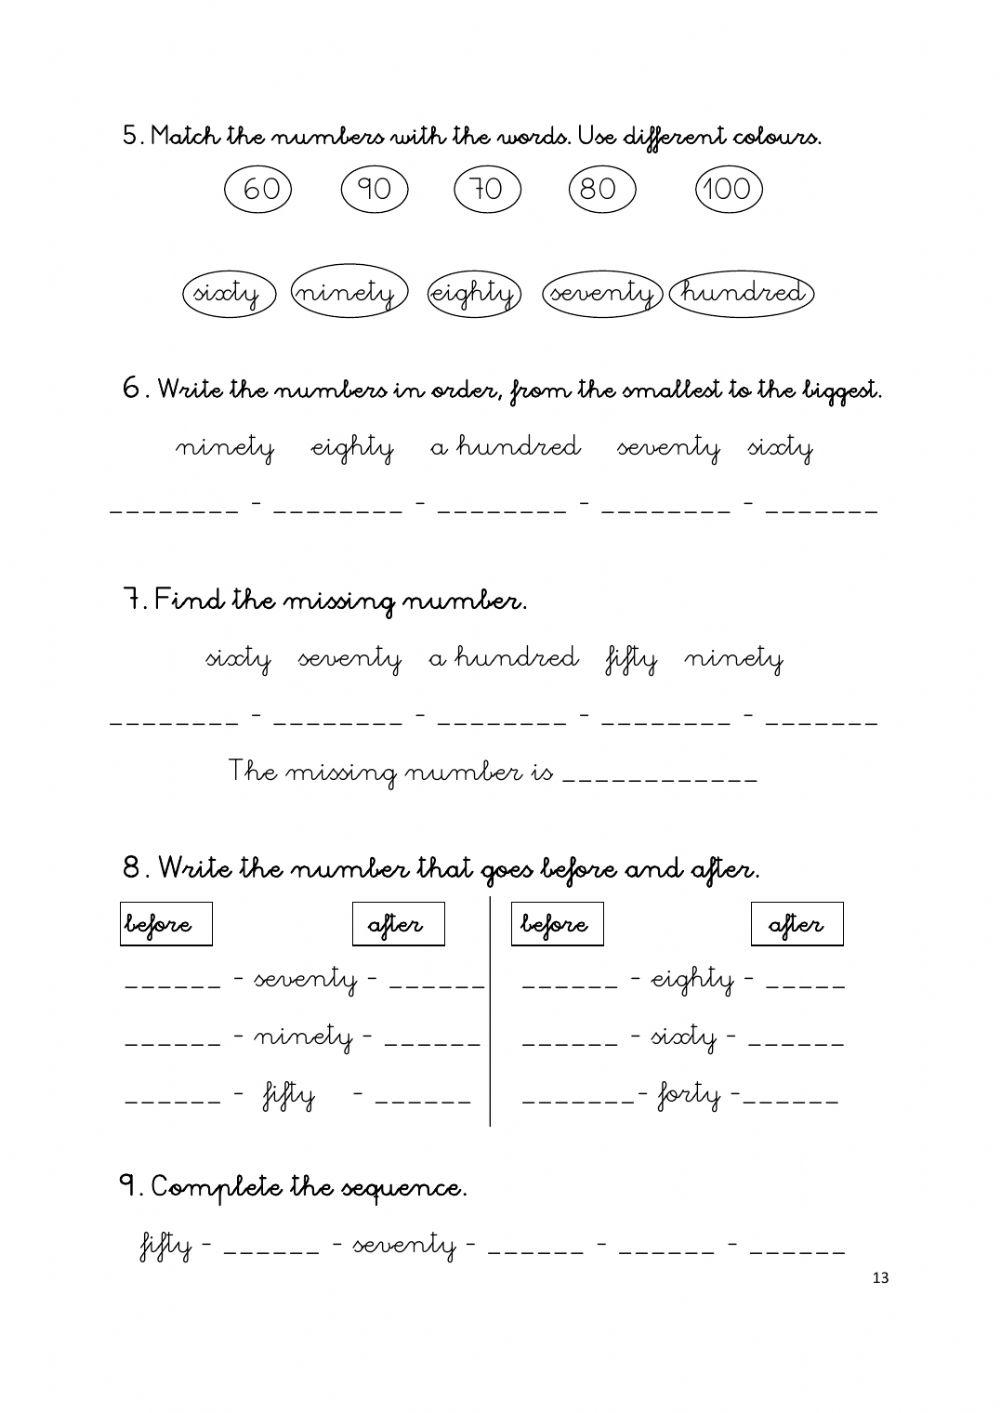 5. Match the numbers with the words. Use different colours.
60 90 70 80 100
sixty ninety eighty seventy hundred
6. Write the numbers in order, from the smallest to the biggest.
ninety eighty a hundred seventy sixty
________ - ________ - ________ - ________ - _______
7. Find the missing number.
sixty seventy a hundred fifty ninety
________ - ________ - ________ - ________ - _______
The missing number is ____________
8. Write the number that goes before and after.
before after before after
______ - seventy - ______ ______ - eighty - _____
______ - ninety - ______ ______ - sixty - ______
______ - fifty - ______ _______ - forty - ______
9. Complete the sequence.
fifty - ______ - seventy - ______ - ______ - ______
13